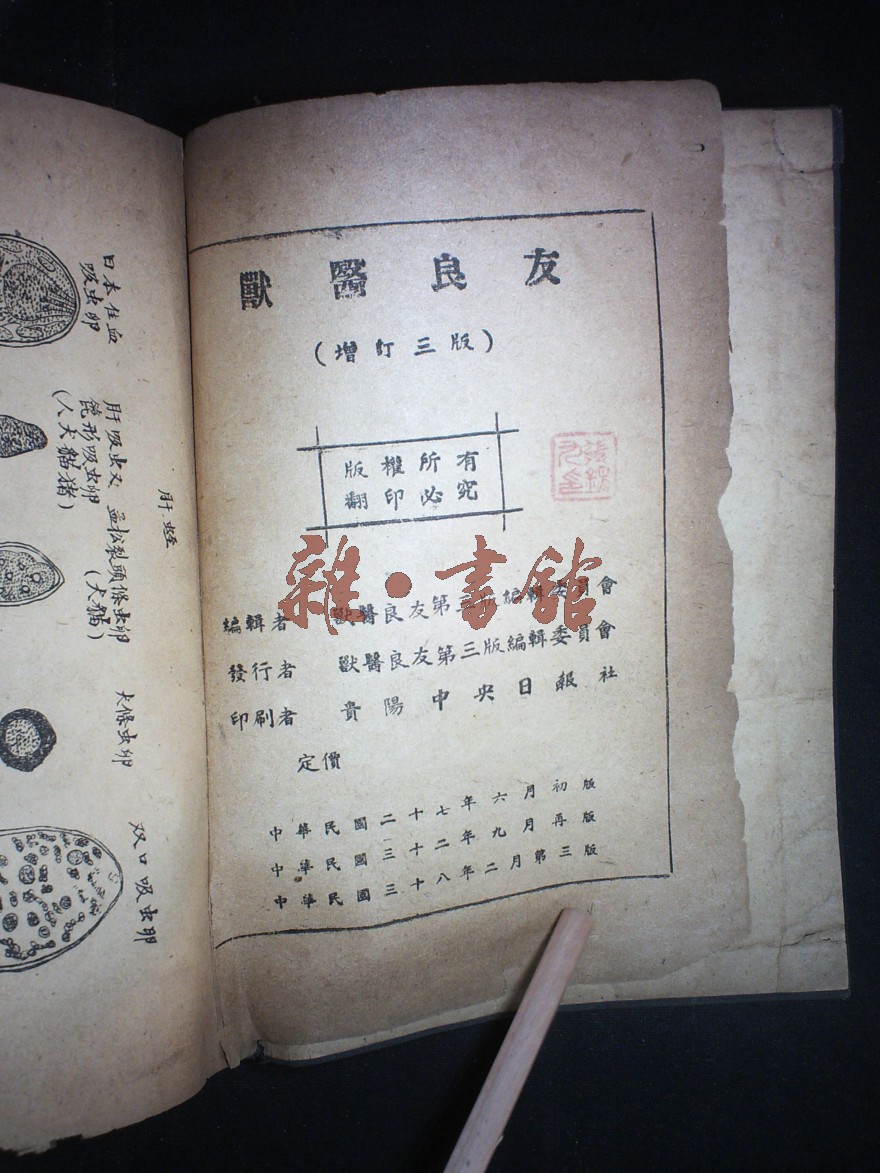 獸醫良友
(增訂三版)
版權所有
翻印必究
編輯者 獸醫良友第三版編輯委員會
發行者 獸醫良友第三版編輯委員會
印刷者 貴陽中央日報社
定價
中華民國二十七年六月初版
中華民國三十二年九月再版
中華民國三十八年二月第三版
雜·書館
肝蛭
日本住血
吸虫卵
肝吸虫又
箆形吸虫卵
(人犬猫猪)
孟松裂頭條虫卵
(犬猫)
犬條虫卵
双口吸虫卵